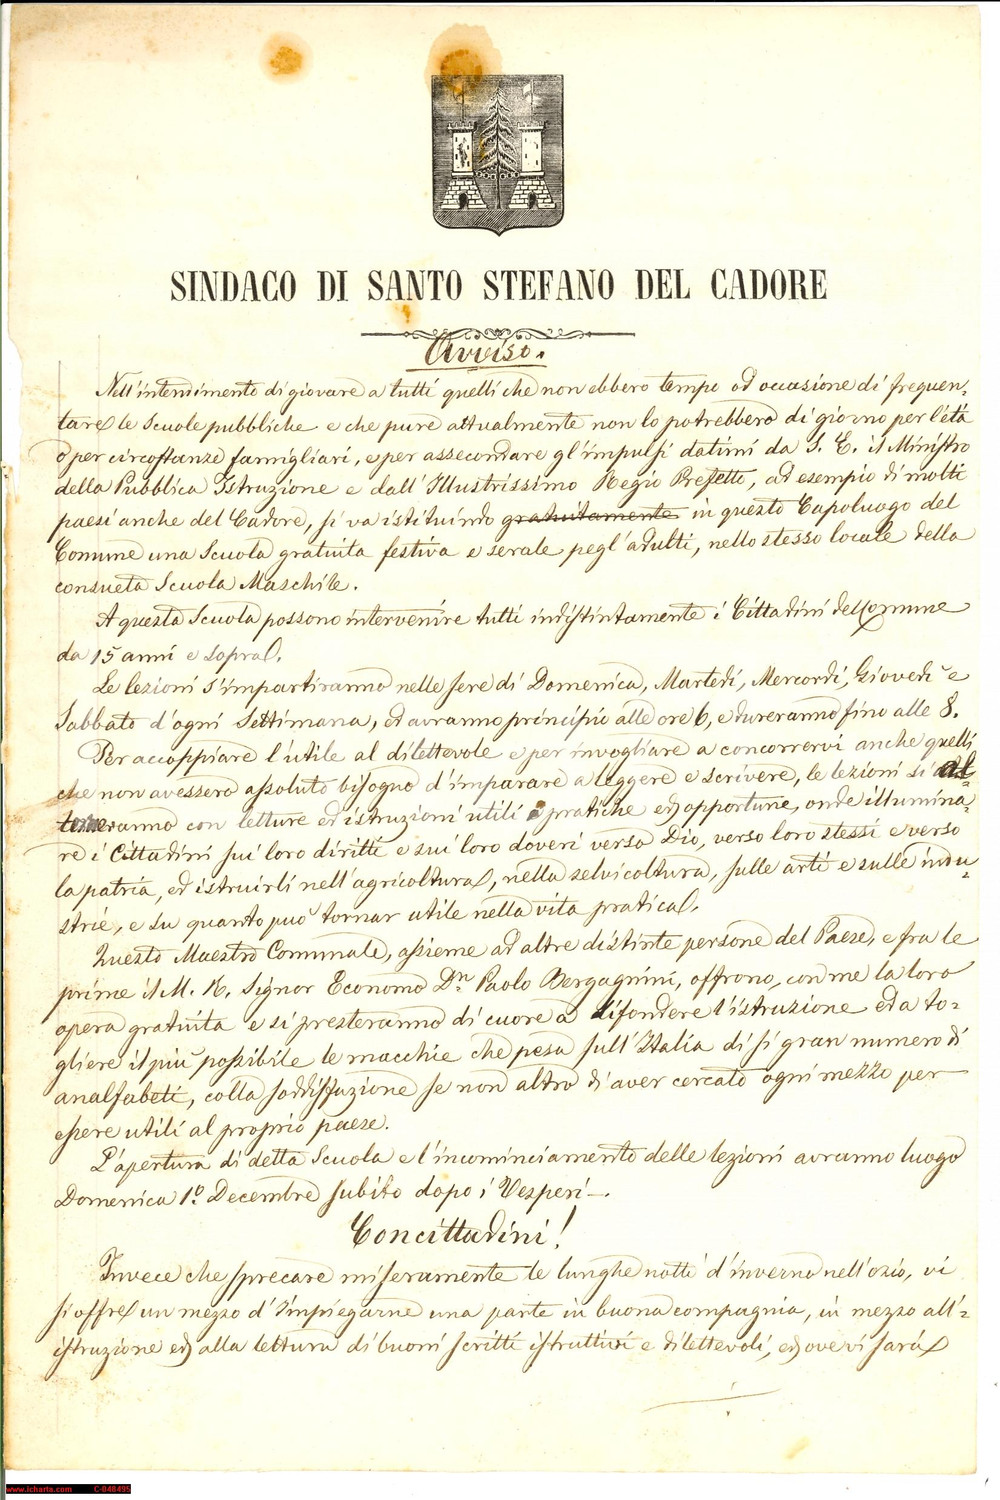 SINDACO DI SANTO STEFANO DEL CADORE
Avviso.
Nell'intendimento di giovare a tutti quelli che non ebbero tempo od occasione di frequen-
tare le Scuole pubbliche e che pure attualmente non lo potrebbero di giorno per l'età
o per circostanze famigliari, e per assecondare gl'impulsi datimi da S. E. il Ministro
della Pubblica Istruzione e dall'Illustrissimo Regio Prefetto, ad esempio di molti
paesi anche del Cadore, si va istituindo gratuitamente in questo Capoluogo del
Comune una Scuola gratuita festiva e serale pegl'adulti, nello stesso locale della
consueta Scuola Maschile.
A questa Scuola possono intervenire tutti indistintamente i Cittadini del Comune
da 15 anni e sopra.
Le lezioni s'impartiranno nelle sere di Domenica, Martedì, Mercordì, Giovedì e
Sabbato d'ogni Settimana, ed avranno principio alle ore 6, e dureranno fino alle 8.
Per accoppiare l'utile al dilettevole e per invogliare a concorrervi anche quelli
che non avessero assoluto bisogno d'imparare a leggere e scrivere, le lezioni si al-
terneranno con letture ed istruzioni utili pratiche ed opportune, onde illumina-
re i Cittadini sui loro diritti e sui loro doveri verso Dio, verso loro stessi e verso
la patria, ed istruirli nell'agricoltura, nella selvicoltura, sulle arti e sulle indu-
strie, e su quanto può tornar utile nella vita pratica.
Questo Maestro Comunale, assieme ad altre distinte persone del Paese, e fra le
prime il M. R. Signor Economo Dn Paolo Bergagnini, offrono, con me la loro
opera gratuita e si presteranno di cuore a difondere l'istruzione ed a to-
gliere il più possibile le macchie che pesa sull'Italia di sì gran numero di
analfabeti, colla soddisfazione se non altro di aver cercato ogni mezzo per
essere utili al proprio paese.
L'apertura di detta Scuola e l'incominciamento delle lezioni avranno luogo
Domenica 1° Decembre subito dopo i Vesperi.
Concittadini!
Invece che sprecare miseramente le lunghe notti d'inverno nell'ozio, vi
si offre un mezzo d'impiegarne una parte in buona compagnia, in mezzo all'i-
struzione ed alla lettura di buoni scritti istruttivi e dilettevoli, ed ove vi sarà
www.icharta.com C-048495